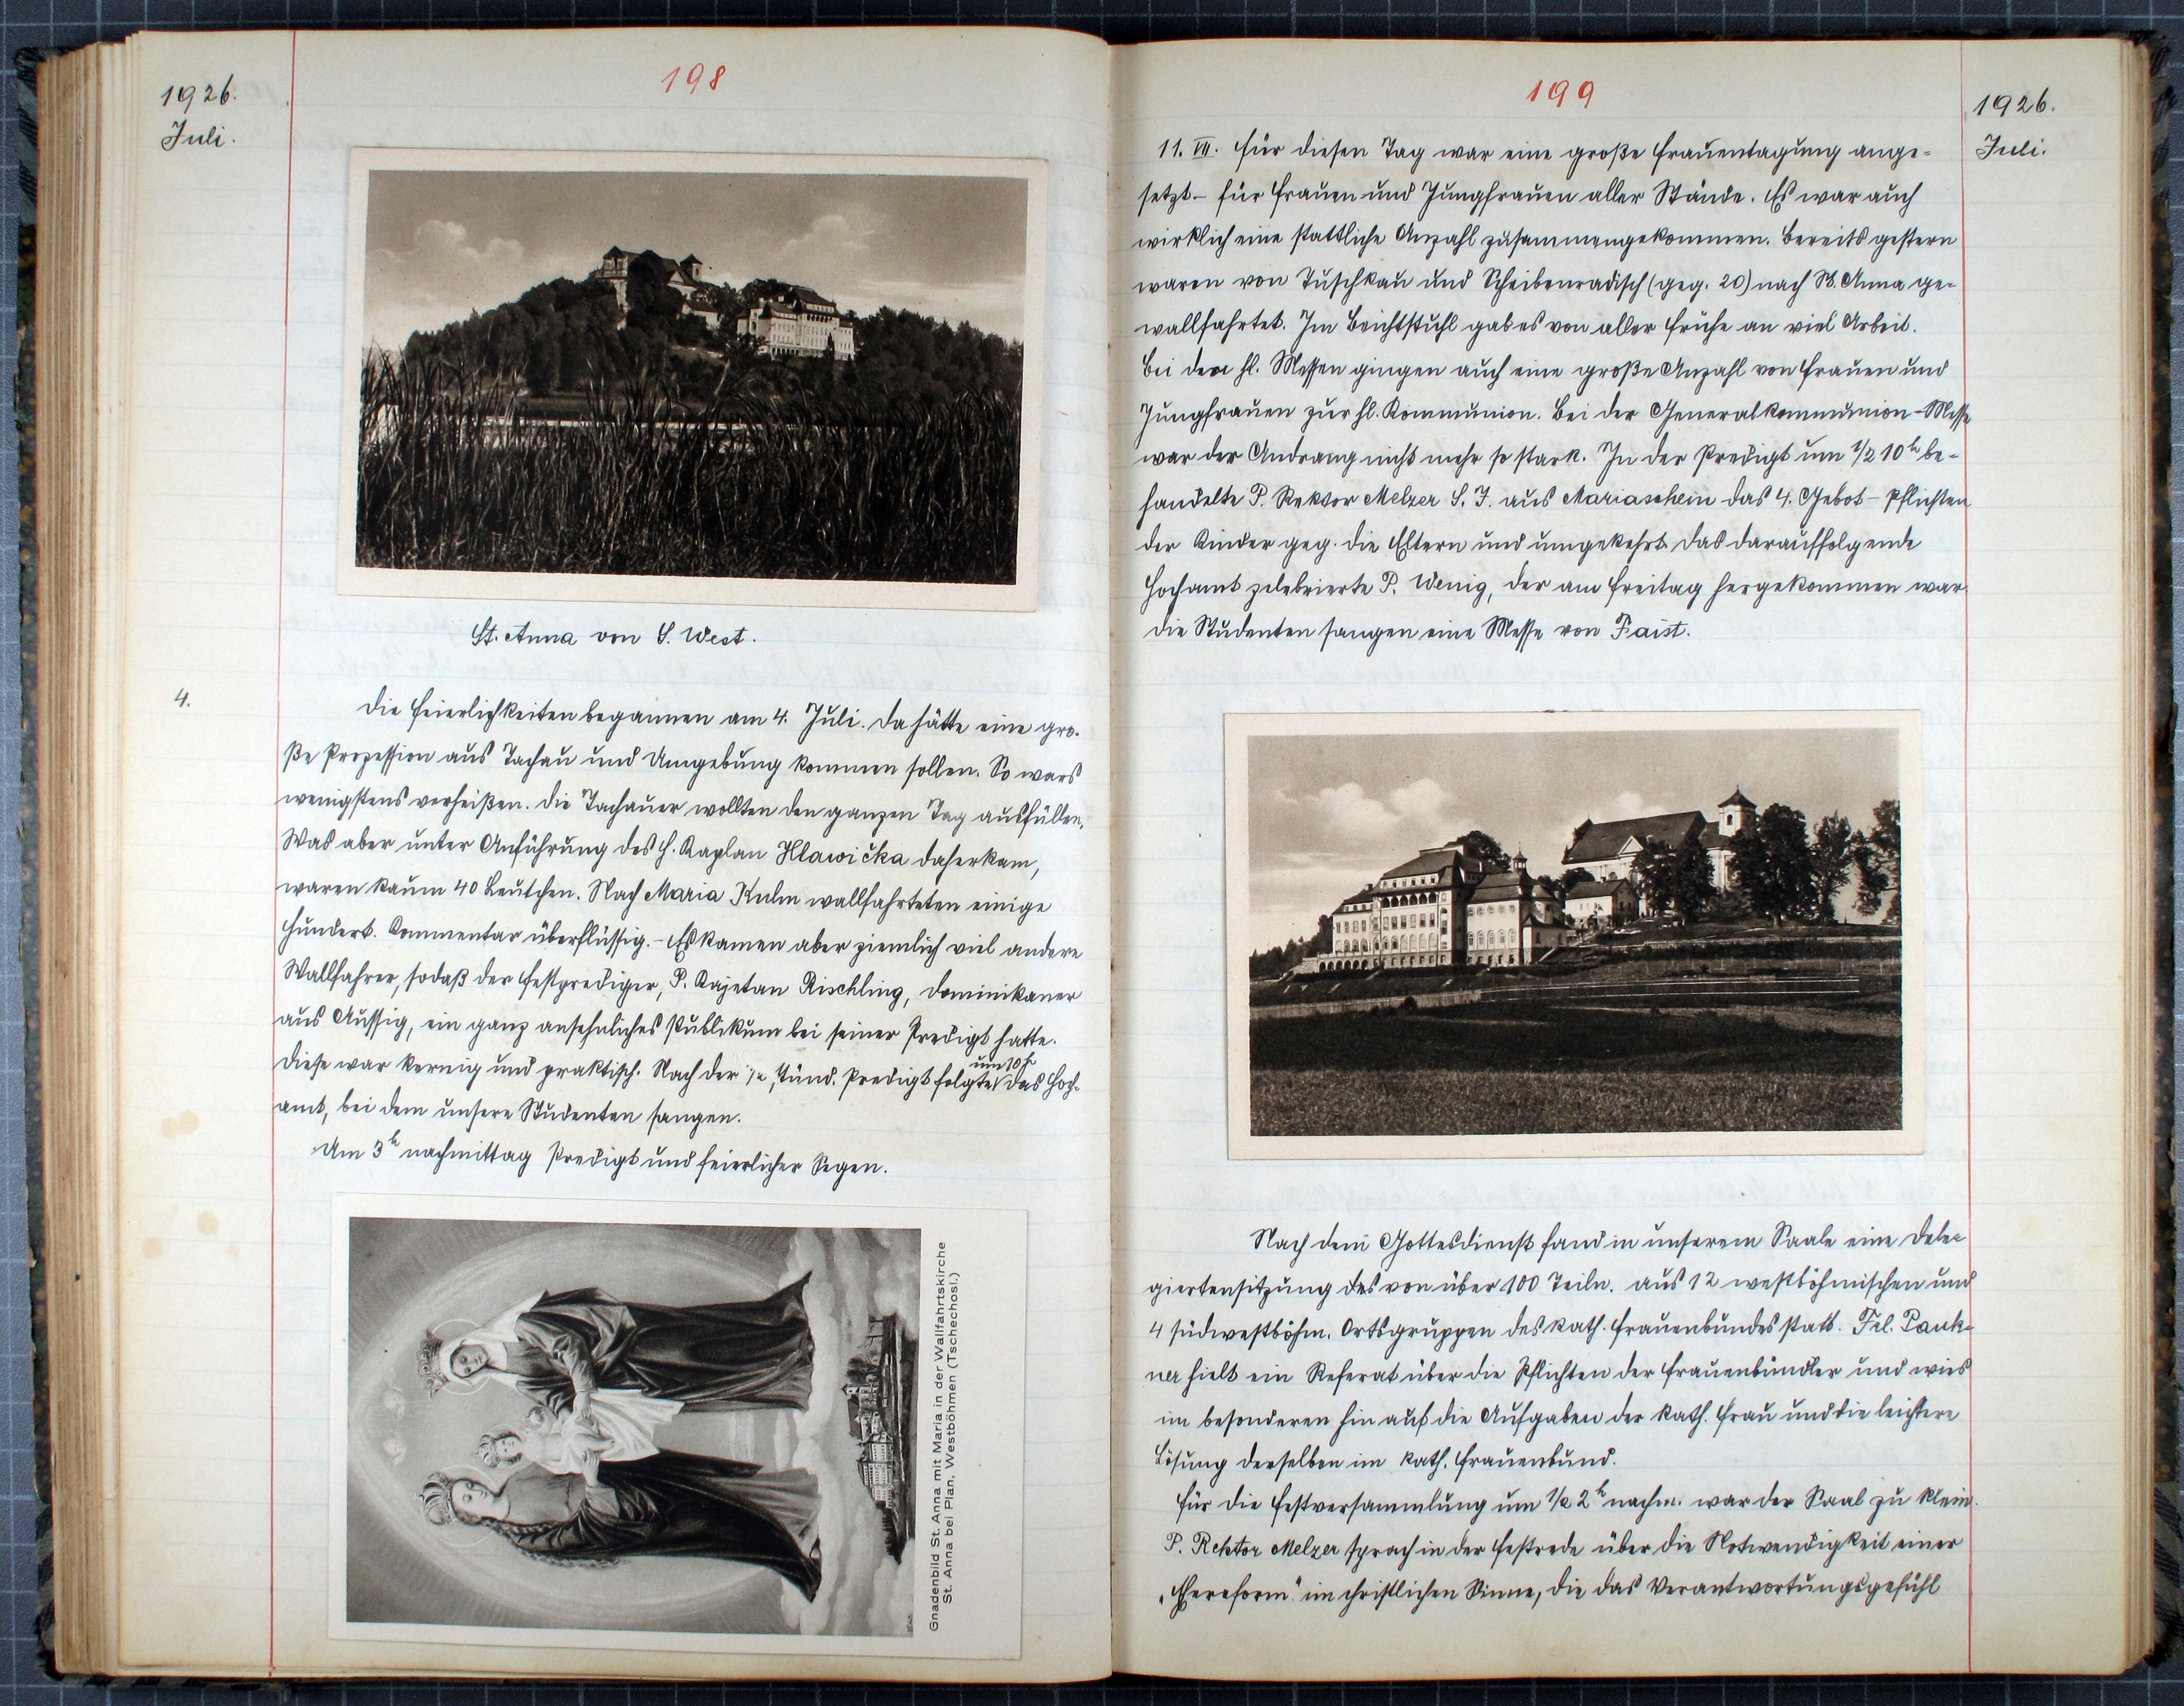 1926.
Juli.
198
St. Anna von S. West.
4.
Die Feierlichkeiten begannen am 4. Juli. Da hätte eine gro-
ße Prozession aus Tachau und Umgebung kommen sollen. So wars
wenigstens verheißen. Die Tachauer wollten den ganzen Tag ausfüllen.
Was aber unter Anführung des H. Kaplan Hlawička daherkam,
waren kaum 40 Leutchen. Nach Maria Kulm wallfahrteten einige
Hundert. Kommentar überflüssig. – Es kamen aber ziemlich viel andere
Wallfahrer, sodaß der Festprediger, P. Kajetan Rischling, Dominikaner
aus Aussig, ein ganz ansehnliches Publikum bei seiner Predigt hatte.
Diese war kernig und praktisch. Nach der ½ stünd. Predigt folgte um 10 h das Hoch-
amt, bei dem unsere Studenten sangen.
Um 3 h nachmittag Predigt und feierlicher Segen.
Gnadenbild St. Anna mit Maria in der Wallfahrtskirche
St. Anna bei Plan, Westböhmen (Tschechosl.)
199
1926.
Juli.
11. VII. Für diesen Tag war eine große Frauentagung ange-
setzt – für Frauen und Jungfrauen aller Stände. Es war auch
wirklich eine stattliche Anzahl zusammengekommen. Bereits gestern
waren von Tuschkau und Scheibenradisch (geg. 20) nach St. Anna ge-
wallfahrtet. Im Beichtstuhl gab es von aller Frühe an viel Arbeit.
Bei den hl. Messen gingen auch eine große Anzahl von Frauen und
Jungfrauen zur hl. Kommunion. Bei der Generalkommunion-Messe
war der Andrang nicht mehr so stark. In der Predigt um ½ 10 h be-
handelte P. Rektor Melzer S. J. aus Mariaschein das 4. Gebot – Pflichten
der Kinder geg. die Eltern und umgekehrt. Das darauffolgende
Hochamt zelebrierte P. Wenig, der am Freitag hergekommen war.
Die Studenten sangen eine Messe von Faist.
Nach dem Gottesdienst fand in unserem Saale eine Dele-
giertensitzung des von über 100 Teiln. aus 12 westböhmischen und
4 südwestböhm. Ortsgruppen des kath. Frauenbundes statt. Frl. Pauk-
ner hielt ein Referat über die Pflichten der Frauenbündler und wies
im besonderen hin auf die Aufgaben der kath. Frau und die leichtere
Lösung derselben im kath. Frauenbund.
Für die Festversammlung um ½ 2 h nachm. war der Saal zu klein.
P. Rektor Melzer sprach in der Festrede über die Notwendigkeit einer
„Ehereform" im christlichen Sinne, die das Verantwortungsgefühl